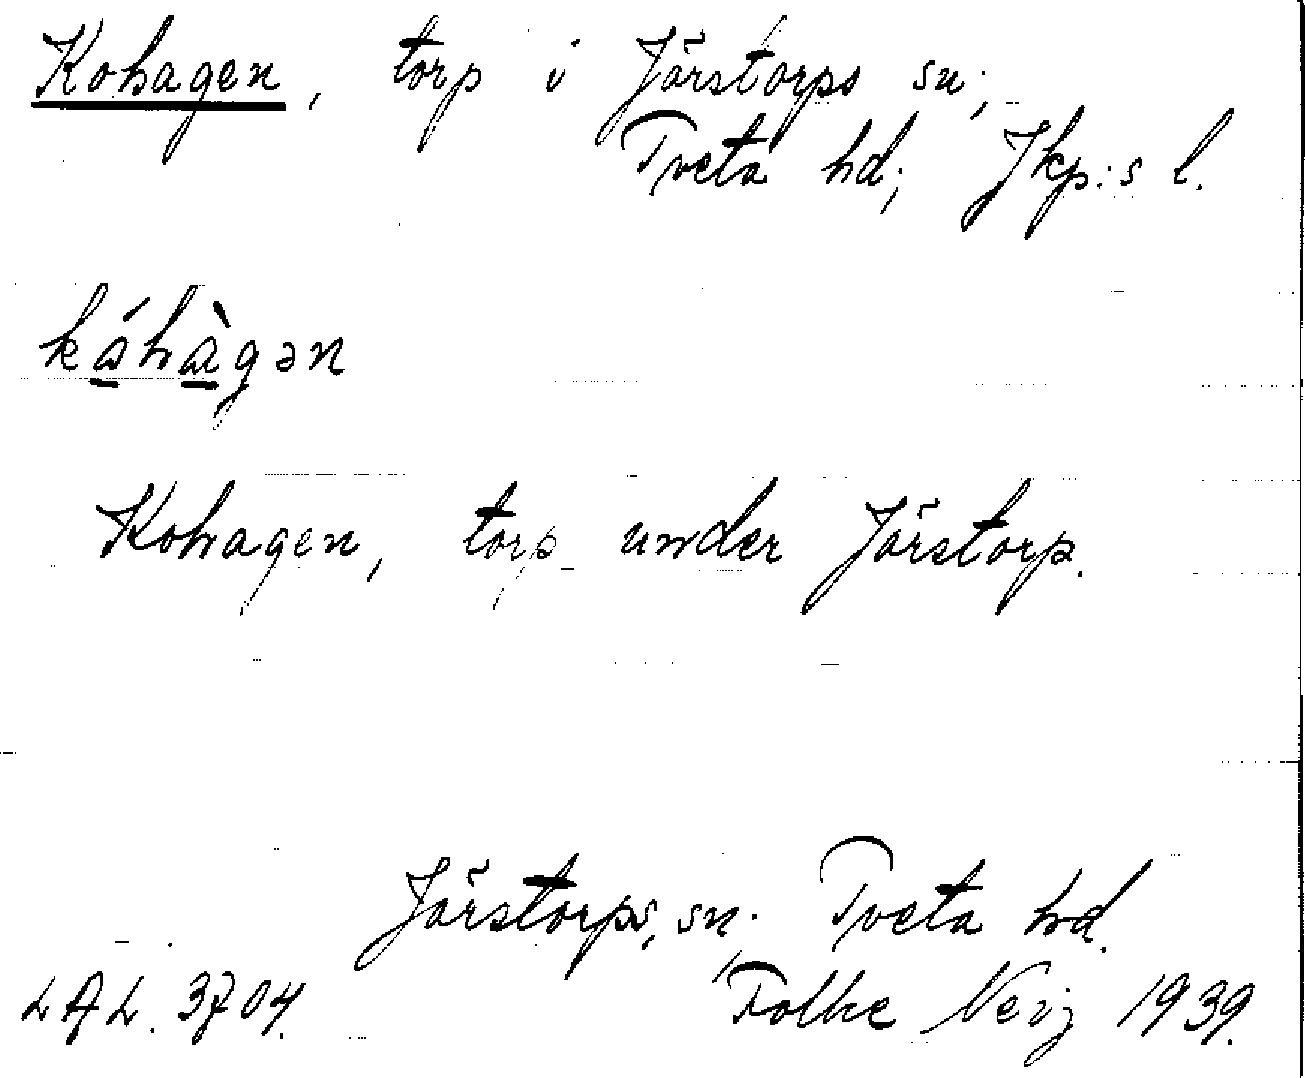 Kohagen, torp i Järstorps sn;
Tveta hd; Jkp:s l.
káhàgən
Kohagen, torp under Järstorp.
Järstorps sn. Tveta hd.
LAL. 3704. Folke Neij 1939.